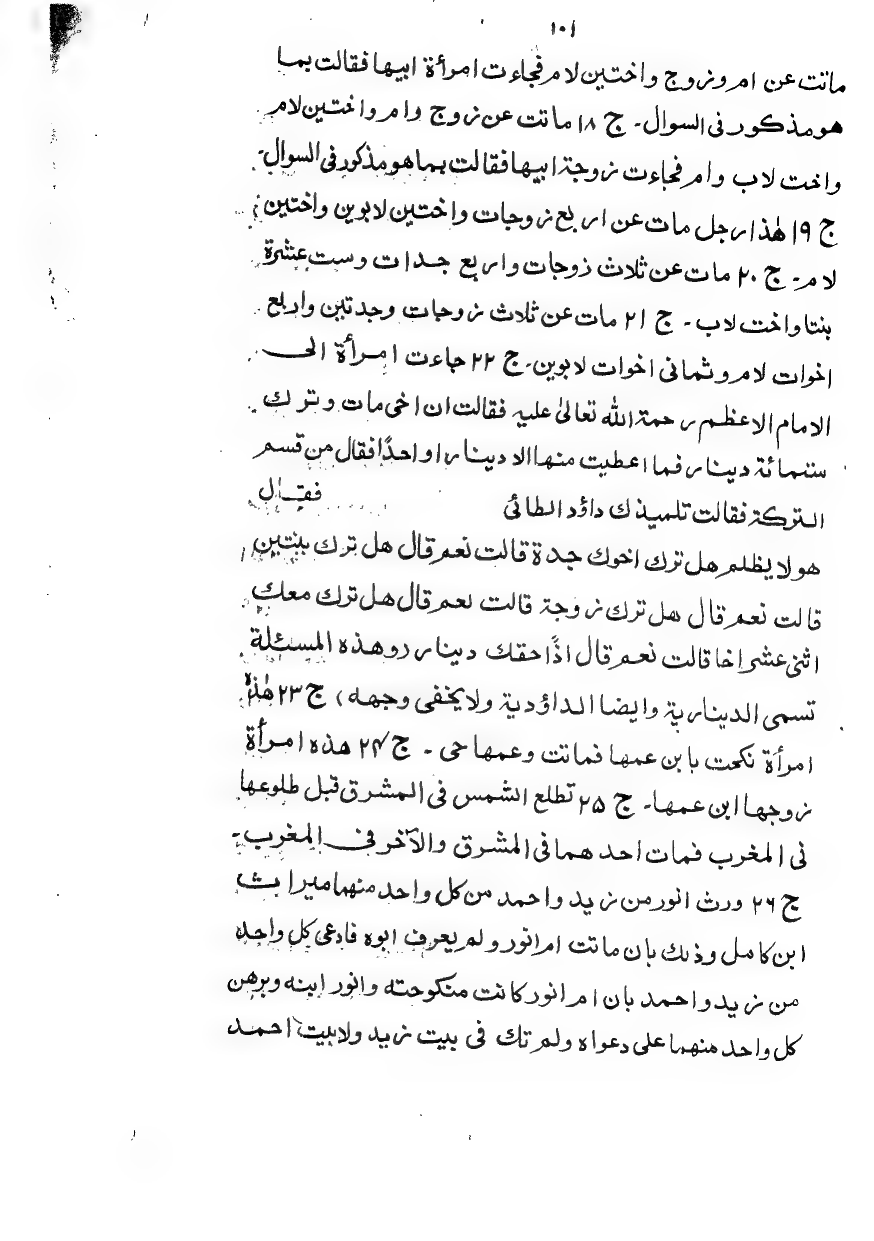 ١٠١
ماتت عن ام وزوج واختين لام فجاءت امرأة ابيها فقالت بما
هو مذكور فى السوال۔ ج ١٨ ماتت عن زوج وام واختين لام
واخت لاب وام فجاءت زوجة ابيها فقالت بما هو مذكور فى السوال۔
ج ١٩ هٰذا رجل مات عن اربع زوجات واختين لابوين واختين
لام۔ ج ٢٠ مات عن ثلاث زوجات واربع جدات وست عشرة
بنتا واخت لاب۔ ج ٢١ مات عن ثلاث زوجات وجدتين واربع
اخوات لام وثمانى اخوات لابوين۔ ج ٢٢ جاءت امرأة الى
الامام الاعظم رحمة الله تعالىٰ عليه فقالت ان اخى مات وترك
ستمائة دينار فما اعطيت منها الا دينارا واحدًا فقال من قسم
التركة فقالت تلميذك داؤد الطائى فقال
هو لا يظلم هل ترك اخوك جدة قالت نعم قال هل ترك بنتين
قالت نعم قال هل ترك زوجة قالت نعم قال هل ترك معك
اثنى عشر اخا قالت نعم قال اذًا حقك دينار (وهذه المسئلة
تسمى الدينارية وايضا الداؤدية ولا يخفى وجهه) ج ٢٣ هٰذه
امرأة نكحت بابن عمها فماتت وعمها حى۔ ج ٢٤ هذه امرأة
زوجها ابن عمها۔ ج ٢٥ تطلع الشمس فى المشرق قبل طلوعها
فى المغرب فمات احدهما فى المشرق والآخر فى المغرب۔
ج ٢٦ ورث انور من زيد واحمد من كل واحد منهما ميراث
ابن كامل وذلك بان ماتت ام انور ولم يعرف ابوه فادعى كل واحد
من زيد واحمد بان ام انور كانت منكوحته وانور ابنه وبرهن
كل واحد منهما على دعواه ولم تك فى بيت زيد ولا بيت احمد